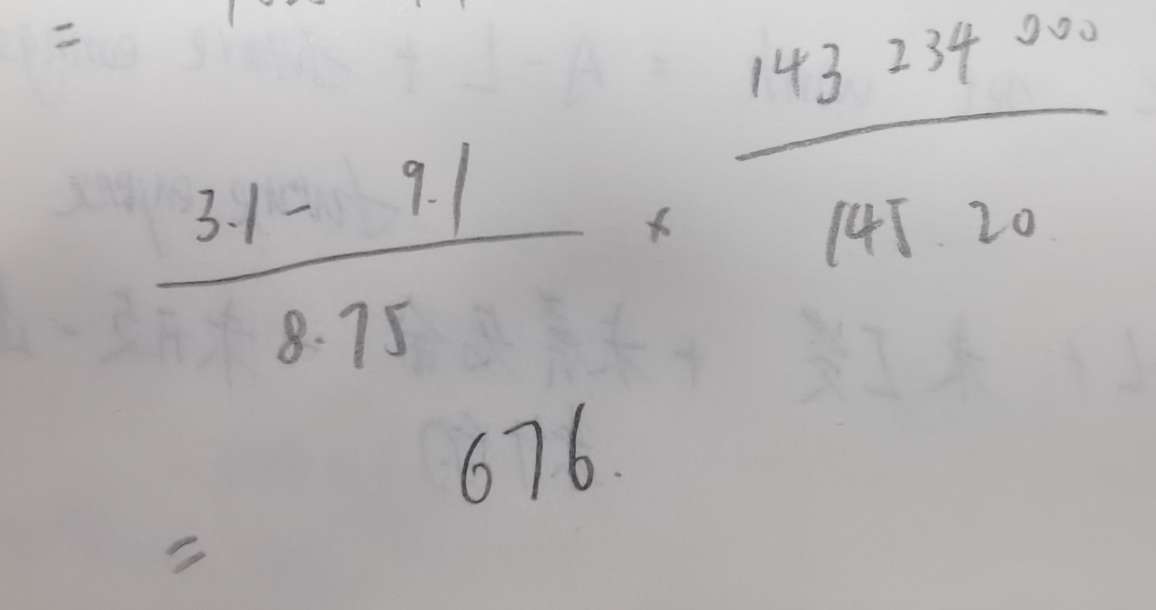 =
143 234 000
3.1 - 9.1 ×
145.20
8.75
676.
=